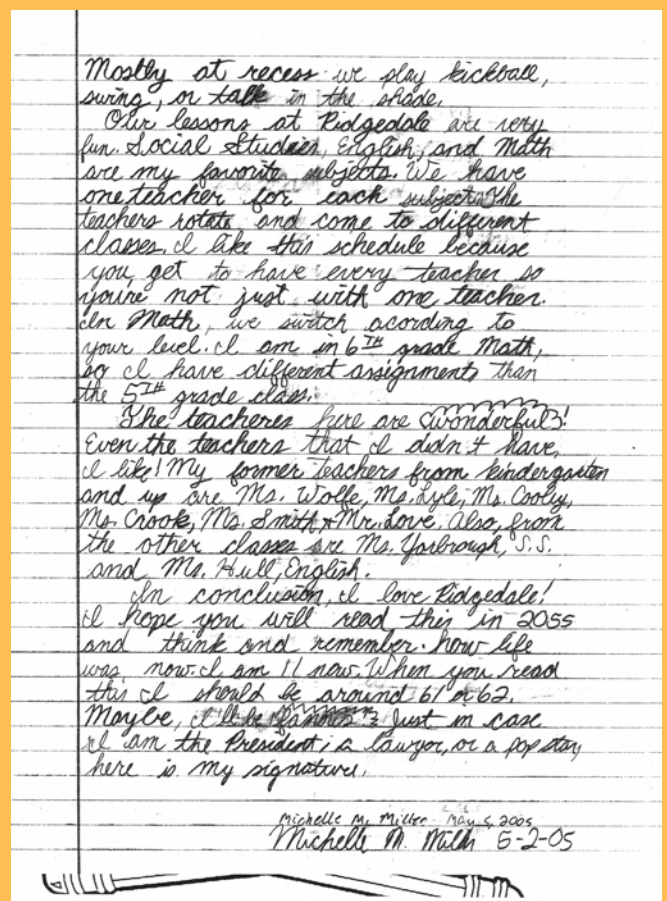 Mostly at recess we play kickball,
swing, or talk in the shade.
Our lessons at Ridgedale are very
fun. Social Studies, English, and Math
are my favorite subjects. We have
one teacher for each subject. The
teachers rotate and come to different
classes. I like this schedule because
you get to have every teacher so
you're not just with one teacher.
In Math, we switch acording to
your level. I am in 6TH grade Math,
so I have different assignments than
the 5TH grade class.
The teacheres here are wonderful!
Even the teachers that I didn't have,
I like! My former teachers from kindergarten
and up are Ms. Wolfe, Ms. Lyle, Ms. Cooley,
Ms. Crook, Ms. Smith, + Mr. Love. Also, from
the other classes are Ms. Yarbrough, S.S.
and Ms. Hull, English.
In conclusion, I love Ridgedale!
I hope you will read this in 2055
and think and remember how life
was now. I am 11 now. When you read
this I should be around 61 or 62.
Maybe, I'll be famous. Just in case
I am the President, a lawyer, or a pop star,
here is my signature.
Michelle M. Miller May 2, 2005
Michelle M. Miller 5-2-05